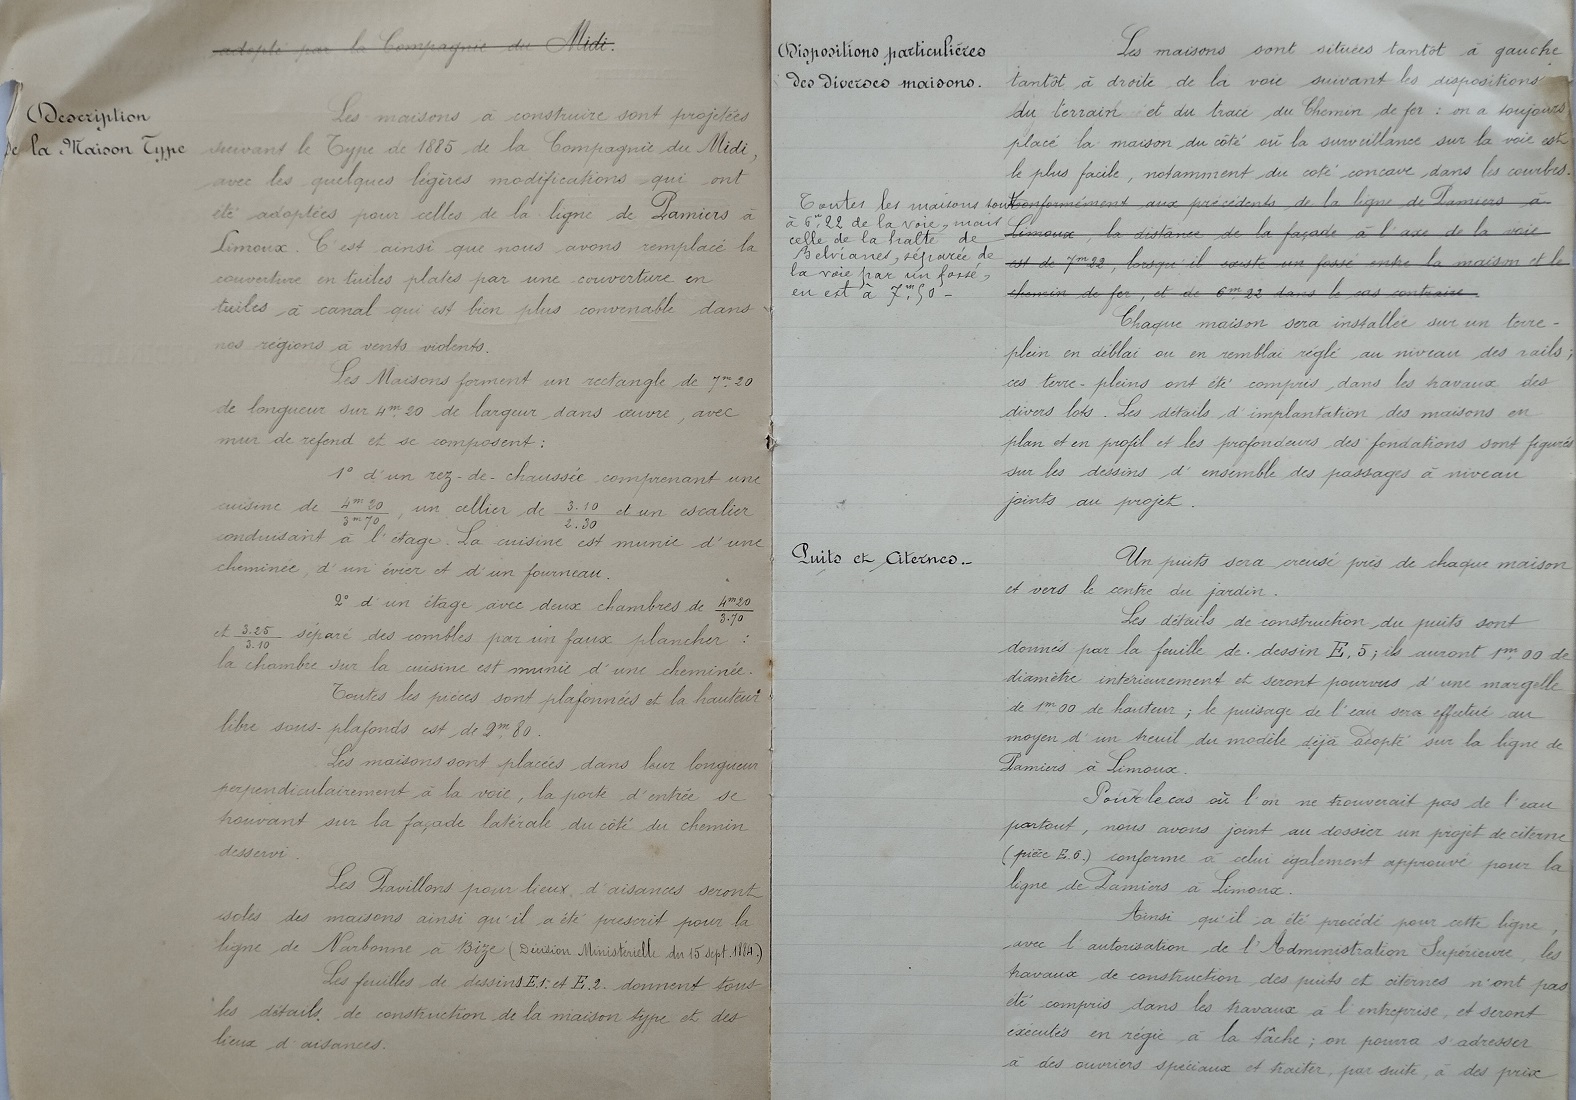 adopté par la Compagnie du Midi.
Description
de la Maison Type
Les maisons à construire sont projetées
suivant le Type de 1885 de la Compagnie du Midi,
avec les quelques légères modifications qui ont
été adoptées pour celles de la ligne de Pamiers à
Limoux. C'est ainsi que nous avons remplacé la
couverture en tuiles plates par une couverture en
tuiles à canal qui est bien plus convenable dans
nos régions à vents violents.
Les Maisons forment un rectangle de 7m.20
de longueur sur 4m.20 de largeur dans œuvre, avec
mur de refend et se composent :
1° d'un rez-de-chaussée comprenant une
cuisine de 4m20/3m70, un cellier de 3.10/2.30 et un escalier
conduisant à l'étage. La cuisine est munie d'une
cheminée, d'un évier et d'un fourneau.
2° d'un étage avec deux chambres de 4m20/3.70
et 3.25/3.10 séparé des combles par un faux plancher :
la chambre sur la cuisine est munie d'une cheminée.
Toutes les pièces sont plafonnées et la hauteur
libre sous-plafonds est de 2m80.
Les maisons sont placées dans leur longueur
perpendiculairement à la voie, la porte d'entrée se
trouvant sur la façade latérale du côté du chemin
desservi.
Les Pavillons pour lieux d'aisances seront
isolés des maisons ainsi qu'il a été prescrit pour la
ligne de Narbonne à Bize (Décision Ministérielle du 15 sept. 1884.)
Les feuilles de dessins E.1. et E.2. donnent tous
les détails de construction de la maison type et des
lieux d'aisances.
Dispositions particulières
des diverses maisons.
Les maisons sont situées tantôt à gauche
tantôt à droite de la voie suivant les dispositions
du terrain et du tracé du Chemin de fer : on a toujours
placé la maison du côté où la surveillance sur la voie est
le plus facile, notamment du coté concave dans les courbes.
Toutes les maisons sont
à 6m,22 de la voie, mais
celle de la halte de
Belvianes, séparée de
la voie par un fossé,
en est à 7m,50 -
Conformément aux précédents de la ligne de Pamiers à
Limoux, la distance de la façade à l'axe de la voie
est de 7m22, lorsqu'il existe un fossé entre la maison et le
chemin de fer, et de 6m.22 dans le cas contraire.
Chaque maison sera installée sur un terre-
plein en déblai ou en remblai réglé au niveau des rails ;
ces terre-pleins ont été compris dans les travaux des
divers lots. Les détails d'implantation des maisons en
plan et en profil et les profondeurs des fondations sont figurés
sur les dessins d'ensemble des passages à niveau
joints au projet.
Puits et Citernes.-
Un puits sera creusé près de chaque maison
et vers le centre du jardin.
Les détails de construction du puits sont
donnés par la feuille de dessin E.5 ; ils auront 1m.00 de
diamètre intérieurement et seront pourvus d'une margelle
de 1m00 de hauteur ; le puisage de l'eau sera effectué au
moyen d'un treuil du modèle déjà adopté sur la ligne de
Pamiers à Limoux.
Pour le cas où l'on ne trouverait pas de l'eau
partout, nous avons joint au dossier un projet de citerne
(pièce E.6.) conforme à celui également approuvé pour la
ligne de Pamiers à Limoux.
Ainsi qu'il a été procédé pour cette ligne,
avec l'autorisation de l'Administration Supérieure, les
travaux de construction des puits et citernes n'ont pas
été compris dans les travaux à l'entreprise, et seront
exécutés en régie à la tâche ; on pourra s'adresser
à des ouvriers spéciaux et traiter, par suite, à des prix